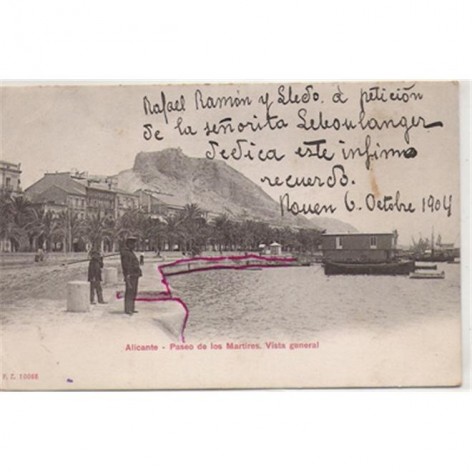 Rafael Ramón y Lledo. á petición
de la señorita Leboulanger
dedica este infimo
recuerdo.
Rouen 6. Octobre 1904
Alicante - Paseo de los Martires. Vista general